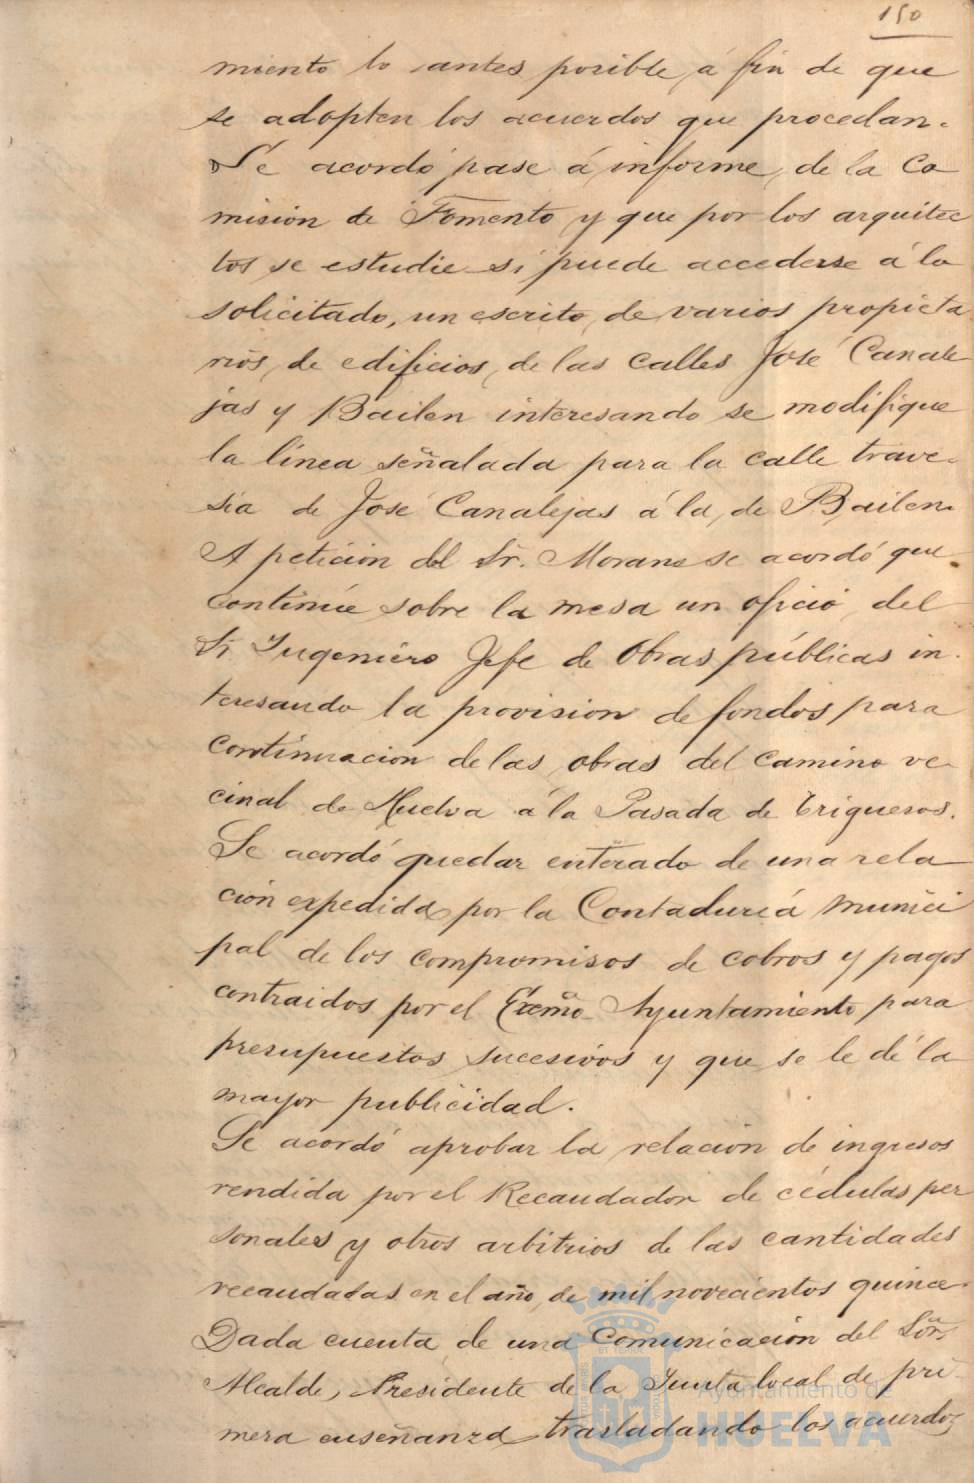 150
miento lo antes posible á fin de que
se adopten los acuerdos que procedan.
Se acordó pase á informe de la Co
misión de Fomento y que por los arquitec
tos se estudie si puede accederse á lo
solicitado, un escrito de varios propieta
rios de edificios de las calles José Canale
jas y Bailen interesando se modifique
la línea señalada para la calle trave-
sía de José Canalejas á la de Bailen.
A petición del Sr. Morano se acordó que
continúe sobre la mesa un oficio del
Sr Ingeniero Jefe de Obras públicas in-
teresando la provision de fondos para
continuacion de las obras del camino ve-
cinal de Huelva á la Pasada de Trigueros.
Se acordó quedar enterado de una rela
ción expedida por la Contaduría Munici
pal de los compromisos de cobros y pagos
contraidos por el Excmo Ayuntamiento para
presupuestos sucesivos y que se le dé la
mayor publicidad.
Se acordó aprobar la relación de ingresos
rendida por el Recaudador de cédulas per
sonales y otros arbitrios de las cantidades
recaudadas en el año de mil novecientos quince
Dada cuenta de una comunicación del Sor.
Alcalde, Presidente de la Junta local de pri-
mera enseñanza trasladando los acuerdos
Ayuntamiento de
HUELVA